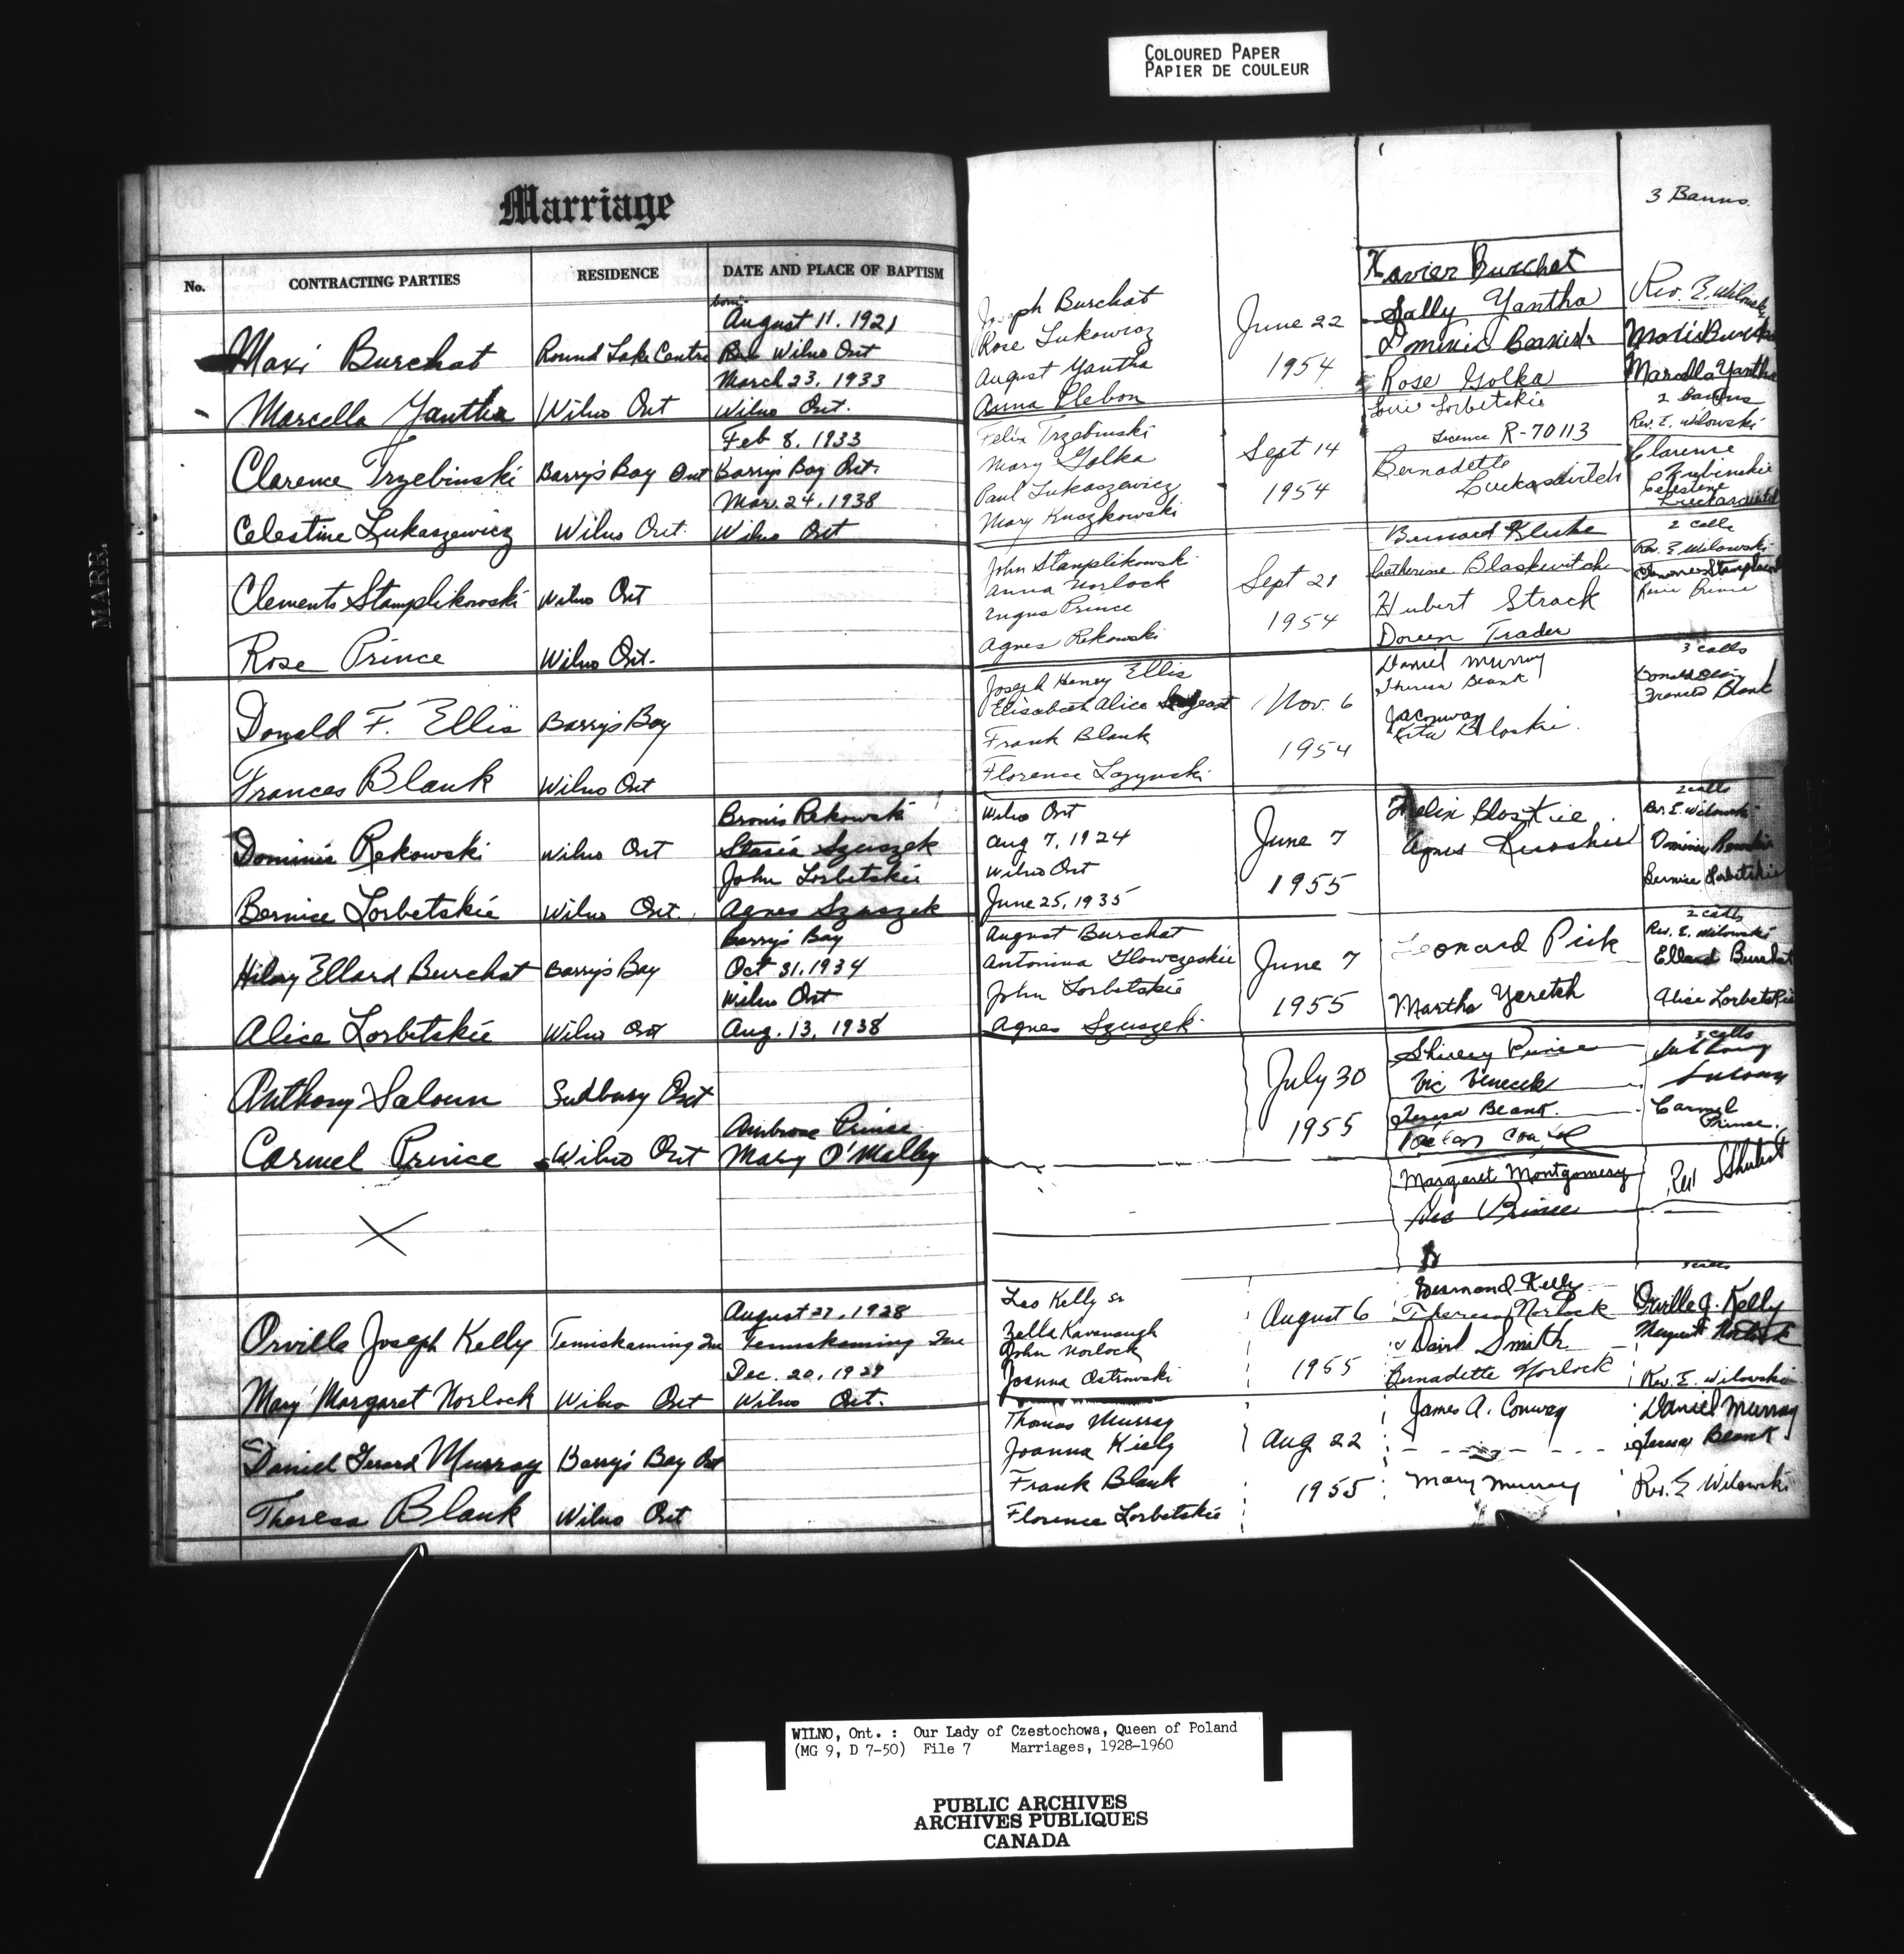 COLOURED PAPER
PAPIER DE COULEUR
Marriage
No.
CONTRACTING PARTIES
RESIDENCE
DATE AND PLACE OF BAPTISM
MARR.
born
August 11. 1921
Maxi Burchat Round Lake Centre Wilno Ont
March 23, 1933
Marcella Yantha Wilno Ont Wilno Ont.
Feb 8. 1933
Clarence Trzebinski Barry's Bay Ont Barry's Bay Ont.
Mar. 24. 1938
Celestine Lukaszewicz Wilno Ont. Wilno Ont
Clements Stamplikowski Wilno Ont
Rose Prince Wilno Ont.
Donald F. Ellis Barry's Bay
Frances Blank Wilno Ont
Bronis Rekowski
Dominic Rekowski Wilno Ont Stasia Szuszek
John Lorbetskie
Bernice Lorbetskie Wilno Ont. Agnes Szuszek
Barry's Bay
Hilary Ellard Burchat Barry's Bay Oct 31. 1934
Wilno Ont
Alice Lorbetskie Wilno Ont Aug. 13, 1938
Anthony Saloun Sudbury Ont
Ambrose Prince
Carmel Prince Wilno Ont Mary O'Malley
X
August 27, 1928
Orville Joseph Kelly Temiskaming Que Temiskaming Que
Dec. 20, 1929
Mary Margaret Norlock Wilno Ont Wilno Ont.
Daniel Gerard Murray Barry's Bay Ont
Theresa Blank Wilno Ont
3 Banns.
Xavier Burchat
Joseph Burchat Sally Yantha Rev. E. Wilowski
Rose Lukowicz June 22 Dominic
August Yantha 1954 Rose Golka Marcella Yantha
Anna Clebon
Lorbetskie 2 banns
Felix Trzebinski Licence R-70113 Rev. E. Wilowski
Mary Golka Sept 14 Bernadette Clarence
Paul Lukaszewicz 1954 Luckasavitch
Mary Kuczkowski Celestine
Bernard 2 calls
John Stamplikowski Catherine Blaskevitch Rev. E Wilowski
Anna Norlock Sept 21
Prince Hubert Strack Prince
Agnes Rekowski 1954 Doreen Trader
3 calls
Joseph Henry Ellis Daniel Murray
Elisabeth Alice Nov. 6 Theresa Blank Frances Blank
Frank Blank 1954
Florence Lazynski
2 calls
Wilno Ont Felix Bloskie Rev. E. Wilowski
Aug 7, 1924 June 7 Agnes
Wilno Ont 1955
June 25, 1935 Bernice Lorbetskie
2 calls
August Burchat Leonard Pick Rev. E. Wilowski
Antonina Glowczeskie June 7 Ellard Burchat
John Lorbetskie 1955 Martha Yeretch Alice Lorbetskie
Agnes Szuszek
3 calls
July 30 Shirley Prince Anthony
1955 Vic
Teresa Blank. Carmel
Prince.
Margaret Montgomery Rev
Des Prince
Leo Kelly sr Desmond Kelly
Zella Kavanaugh August 6 Theresa Norlock Orville J. Kelly
John Norlock David Smith Margaret Norlock
Joanna Ostrowski 1955 Bernadette Norlock Rev. E. Wilowski
Thomas Murray James A. Conway Daniel Murray
Joanna Kiely Aug 22 Teresa Blank
Frank Blank 1955 Mary Murray Rev. E Wilowski
Florence Lorbetskie
WILNO, Ont. : Our Lady of Czestochowa, Queen of Poland
(MG 9, D 7-50) File 7 Marriages, 1928-1960
PUBLIC ARCHIVES
ARCHIVES PUBLIQUES
CANADA